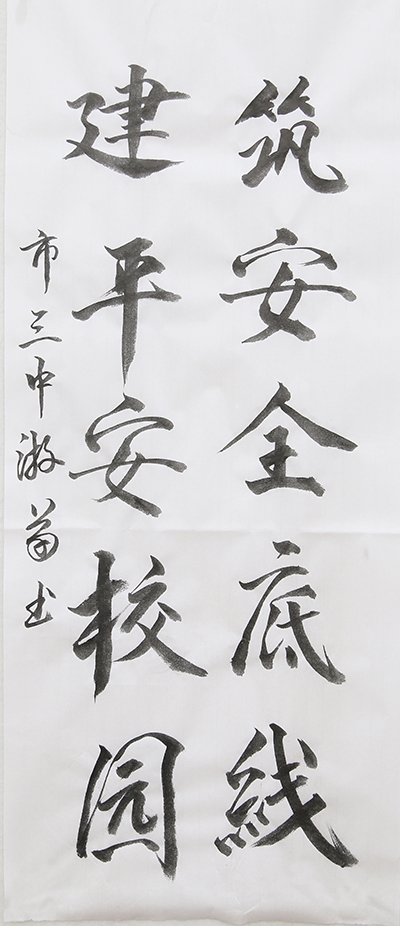 筑安全底线
建平安校园
市三中游